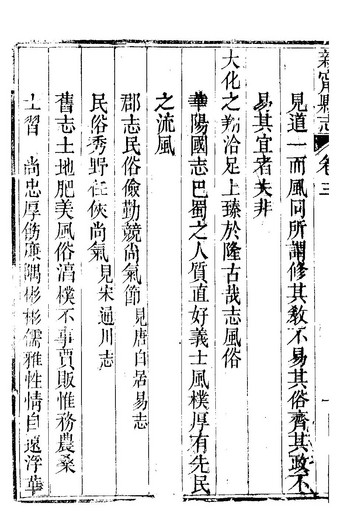 新寧縣志 卷三 一
見道一而風同所謂修其敎不易其俗齊其政不
易其宜者夫非
大化之翔洽足上臻於隆古哉志風俗
華陽國志巴蜀之人質直好義士風樸厚有先民
之流風
郡志民俗儉勤競尚氣節 見唐白居易志
民俗秀野任俠尚氣 見宋通川志
舊志土地肥美風俗湻樸不事賈販惟務農桑
士習 尚忠厚飭廉隅彬彬儒雅性情自遠浮華